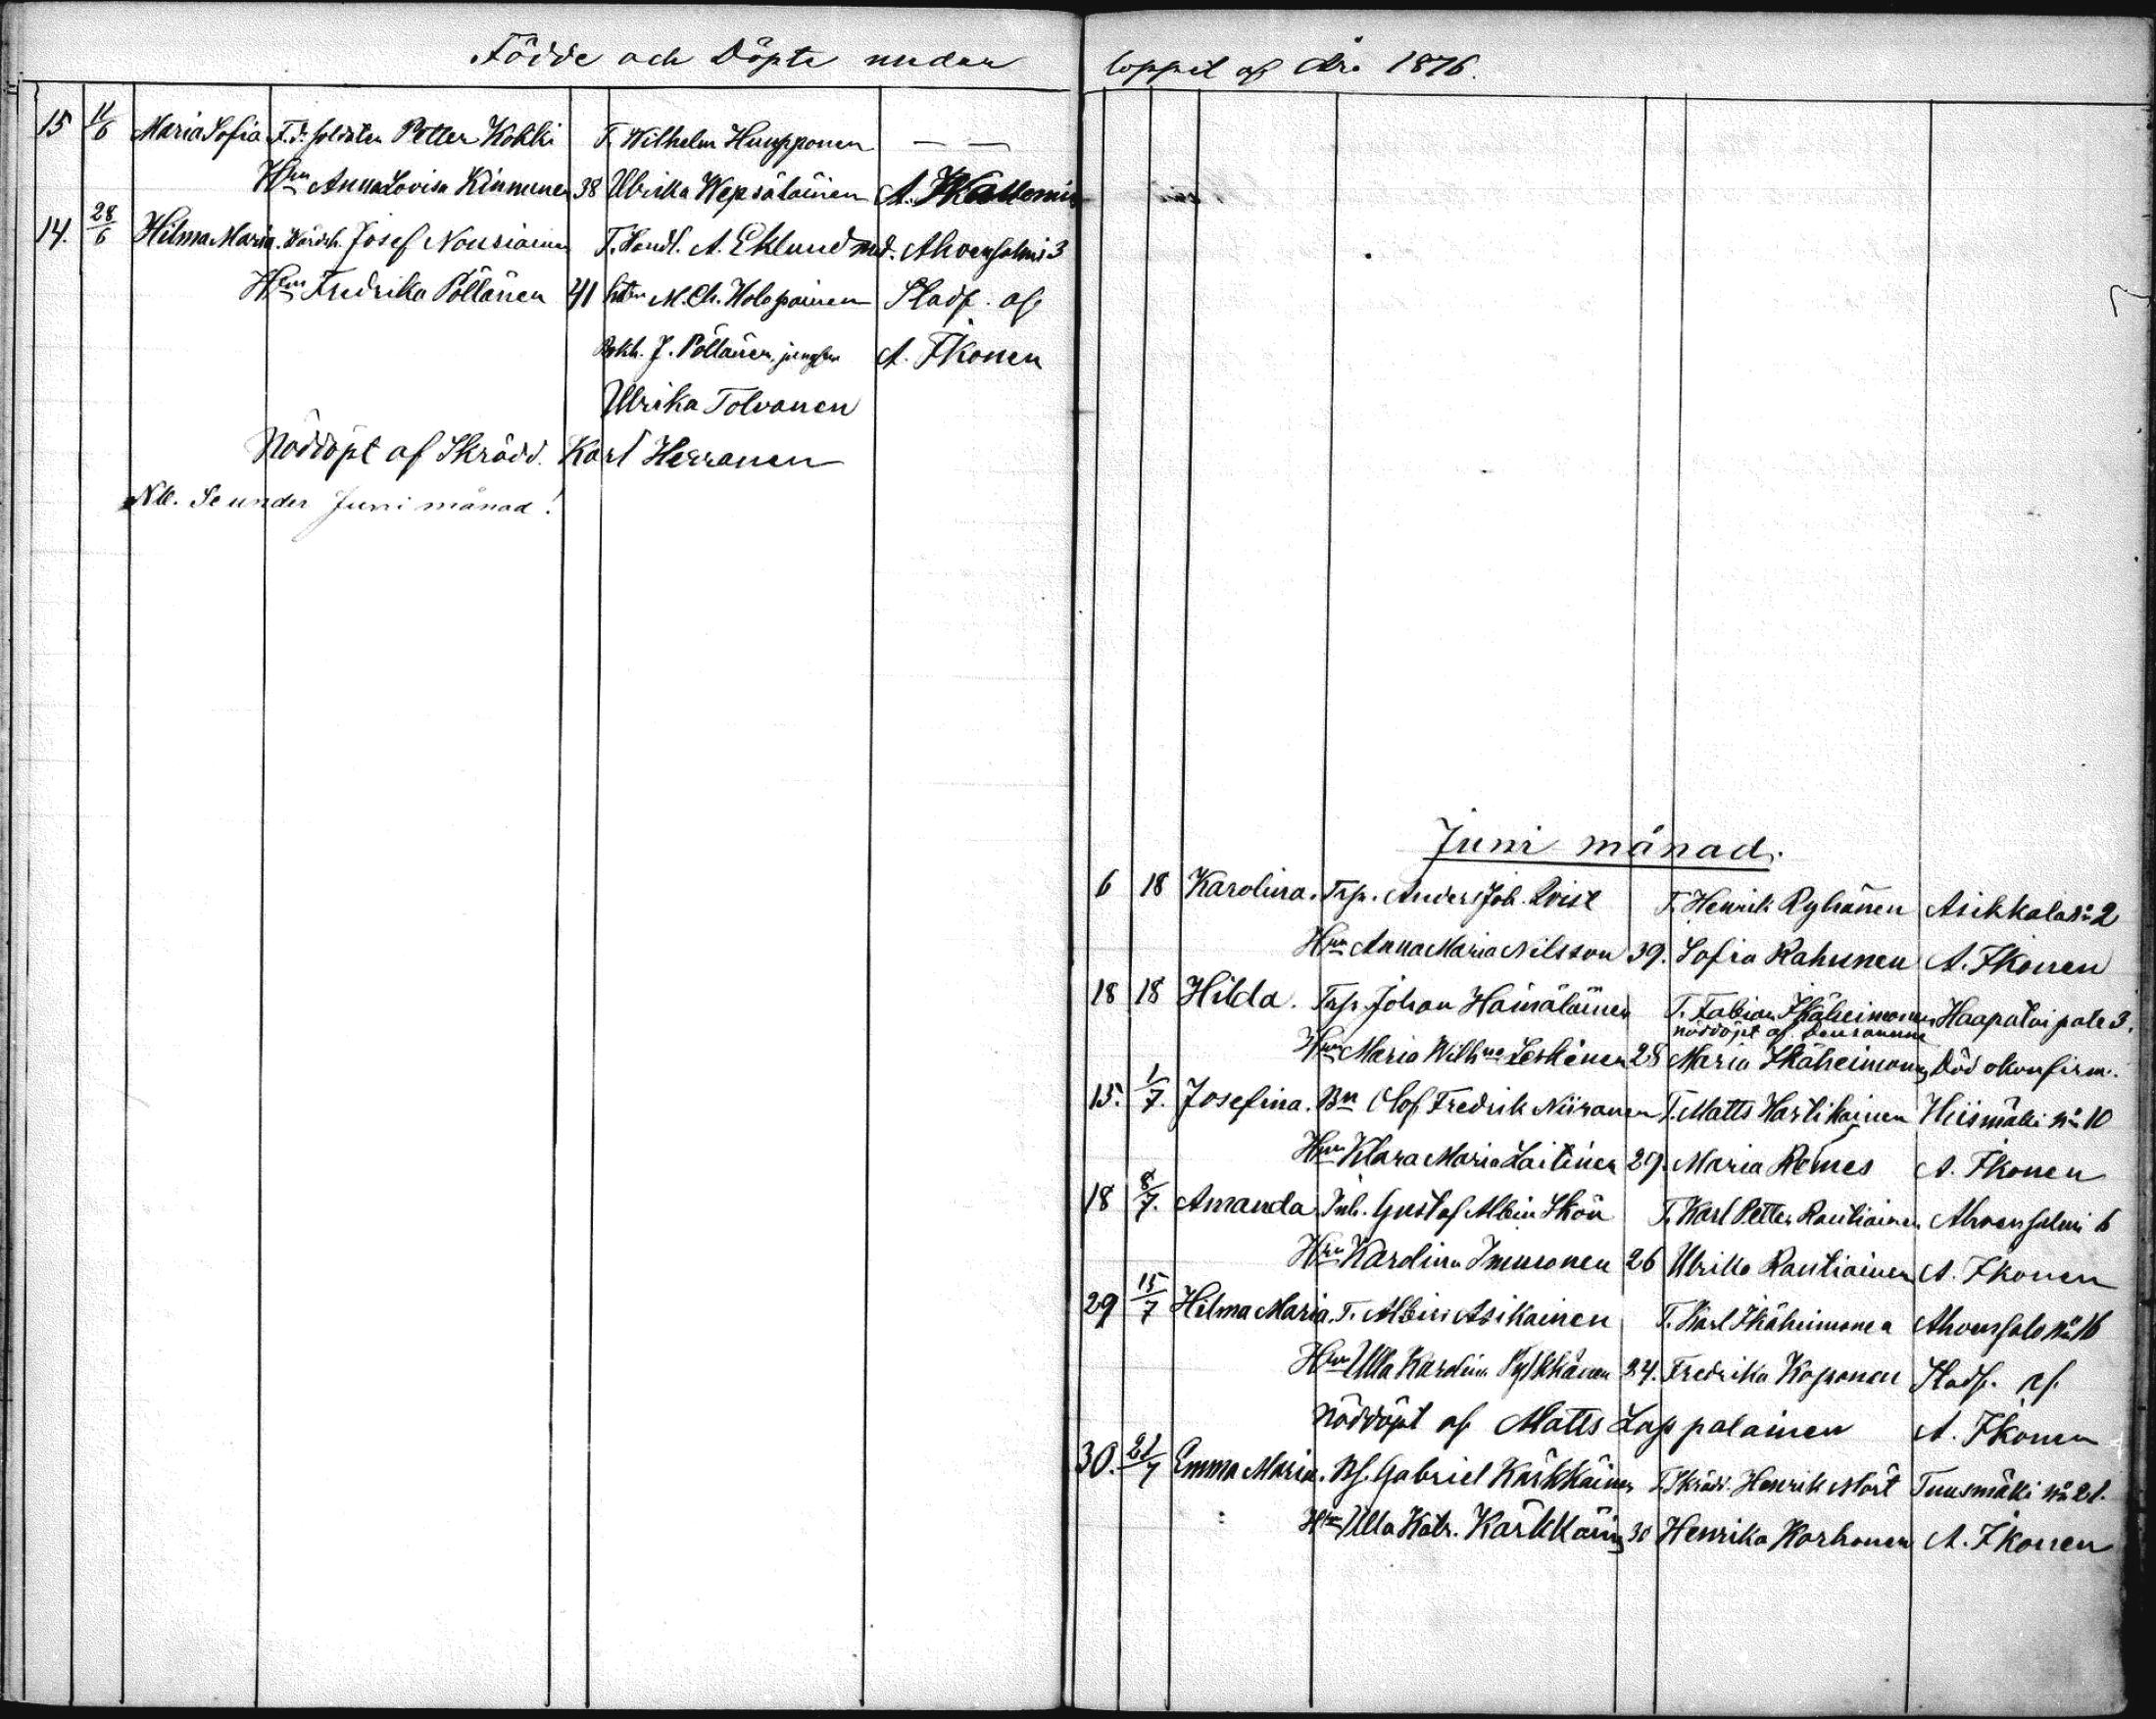 Födde och Döpte under loppet af År 1876.
15 11/6 Maria Sofia F.d. soldaten Petter Kokki T. Wilhelm Huupponen — —
Hu Anna Lovisa Kinnunen 38 Ulrika Wepsäläinen A.
14. 28/6 Hilma Maria. Josef Nousiainen T. Handl. A. Eklund m.d. Ahvensalmi 3
Hu Fredrika Pöllänen 41 M. Ch. Holopainen Stadf. af
Bokh. J. Pöllänen, jungfru A. Ikonen
Ulrika Tolvanen
Nöddöpt af Skrädd. Karl Herranen
NB. Se under Juni månad!
Juni månad.
6 18 Karolina. Torp. Anders Joh. Qvist T. Henrik Ryhänen Asikkala No 2
Hu Anna Maria Nilsson 39. Sofia Rahunen A. Ikonen
18 18 Hilda. Torp. Johan Hämäläinen T. Fabian Ikäheimonen Haapataipale 3.
nöddöpt af densamme
Hu Maria Wilhna Leskinen 28 Maria Ikäheimonen Död okonfirm.
15. 1/7. Josefina. Bn Olof Fredrik Niiranen T. Matts Hartikainen Hiismäki No 10
Hu Klara Maria Laitinen 29. Maria Remes A. Ikonen
18 8/7. Amanda Inh. Gustaf Albin Skön T. Karl Petter Rautiainen Ahvensalmi 6
Hu Karolina Immonen 26 Ulrika Rautiainen A. Ikonen
29 15/7 Hilma Maria. T. Albin Asikainen T. Karl Ikäheimonen Ahvensalo No 16
Hu Ulla Karolina Pylkkänen 24. Fredrika Koponen Stadf. af
Nöddöpt af Matts Lappalainen A. Ikonen
30. 21/7 Emma Maria. Bf. Gabriel Kärkkäinen T. Skrädd. Henrik Mört Tuusmäki No 21.
Hu Ulla Katr. Kärkkäin 30 Henrika Korhonen A. Ikonen